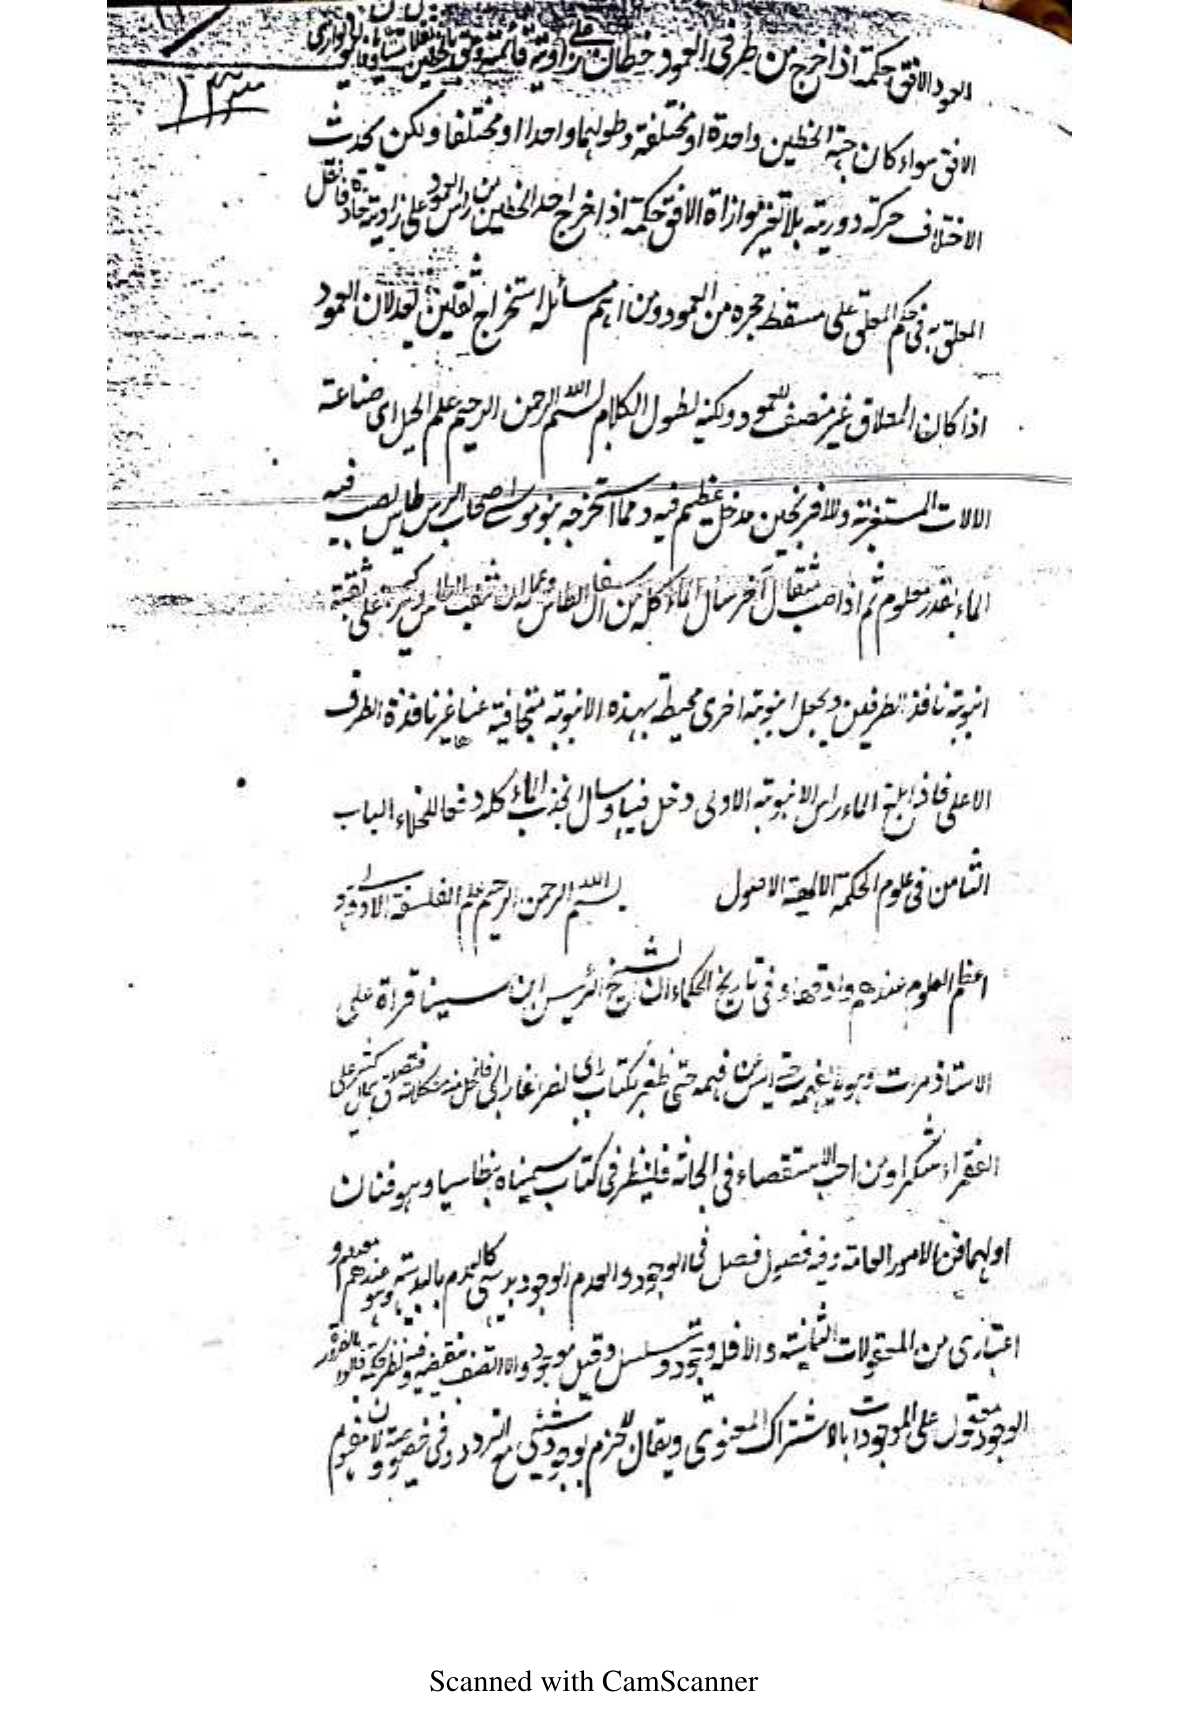 العمود الافق حكمة اذا اخرج من طرفى العمود خطان على زاوية قائمة وعلق بالخطين ثقلان متساويان
الافق سواء كان جهة الخطين واحدة او مختلفة وطولهما واحدا او مختلفا ولكن يحدث
الاختلاف حركة دورية بلا تغير لموازاة الافق حكمة اذا اخرج احد الخطين من راس العمود على زاوية حادة فالثقل
المعلق به فى حكم المعلق على مسقط حجره من العمود ومن اهم مسائله استخراج ثقلين يعدلان العمود
اذا كان المعلاق غير منصف للعمود ولكنه لطول الكلام بسم الله الرحمن الرحيم علم الحيل اى صناعة
الالات المستغربة وللافرنجين مدخل عظيم فيه ومما استخرجه بنو موسى اصحاب الرس طاس يصب فيه
الماء بقدر معلوم ثم اذا صب مثقال آخر سال الماء كله من اسفل الطاس وعمله ان تثقب الطاس ويركب على ثقبته
انبوبة نافذ الطرفين ويجعل انبوبة اخرى محيطة بهذه الانبوبة متجافية عنها غير نافذة الطرف
الاعلى فاذا بلغ الماء راس الانبوبة الاولى دخل فيها وسال انجذب الماء كله دفعا للخلاء الباب
الثامن فى علوم الحكمة الالهية الاصول بسم الله الرحمن الرحيم علم الفلسفة الاولى
اعظم العلوم عندهم وادقها وفى تاريخ الحكماء ان الشيخ الرئيس ابن سينا قراة على
الاستاذ مرت وهو لا يفهمه حتى ايس من فهمه حتى ظفر بكتاب لابى نصر فارابى فانحل منه مشكلاته فتصدق بمال كثير على
الفقراء شكرا ومن احب الاستقصاء فى الحاثه فلينظر فى كتاب سميناه بنطاسيا وهو فنان
اولهما فن الامور العامة وفيه فصول فصل فى الوجود والعدم الوجود بديهى كالعدم بالبديهة وهو عندهم معدوم
اعتبارى من المعقولات الثانية والا فله وجود وتسلسل وقيل موجود والا اتصف بنقيضه وفيه نظر حكمة قالوا بالضرورة
الوجود مقول على الموجودات بالاشتراك المعنوى ويقال للجزم بوجود شئى مع التردد فى خصوصيته ولان مفهوم
Scanned with CamScanner